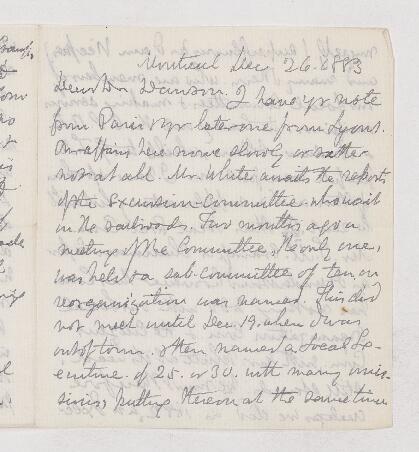 Montreal Dec 26. 1883
Dear Dr Dawson. I have yr note
from Paris & yr later one from Lyons.
Our affairs here move slowly or rather
not at all. Mr. White awaits the reports
of the Excursion Committee who wait
on the railroads. Two months ago a
meeting of the Committee, the only one,
was held & a sub-committee of ten on
reorganization was named. This did
not meet until Dec. 19. when I was
out of town. & then named a Local Ex-
ecutive of 25. or 30. with many omis-
sions, putting thereon at the same time